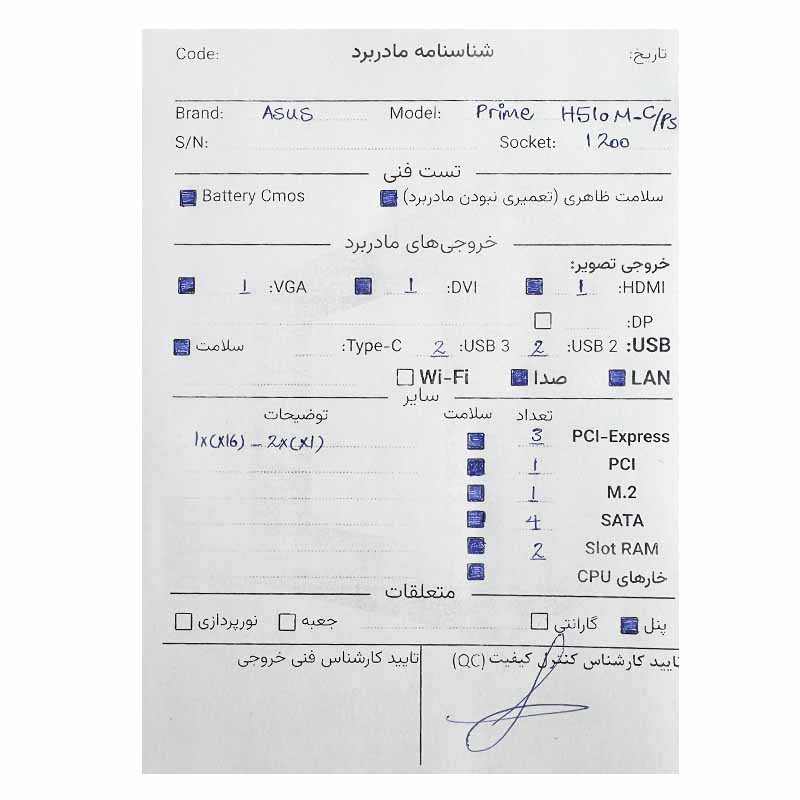 تاریخ: شناسنامه مادربرد Code:
Brand: ASUS Model: Prime H510M-C/PS
S/N: Socket: 1200
تست فنی
سلامت ظاهری (تعمیری نبودن مادربرد) Battery Cmos
خروجی‌های مادربرد
خروجی تصویر:
HDMI: 1 DVI: 1 VGA: 1
DP:
USB: USB 2: 2 USB 3: 2 Type-C: سلامت
LAN صدا Wi-Fi
سایر
تعداد سلامت توضیحات
PCI-Express 3 1x(x16) - 2x(x1)
PCI 1
M.2 1
SATA 4
Slot RAM 2
خارهای CPU
متعلقات
پنل گارانتی جعبه نورپردازی
تایید کارشناس کنترل کیفیت (QC) تایید کارشناس فنی خروجی